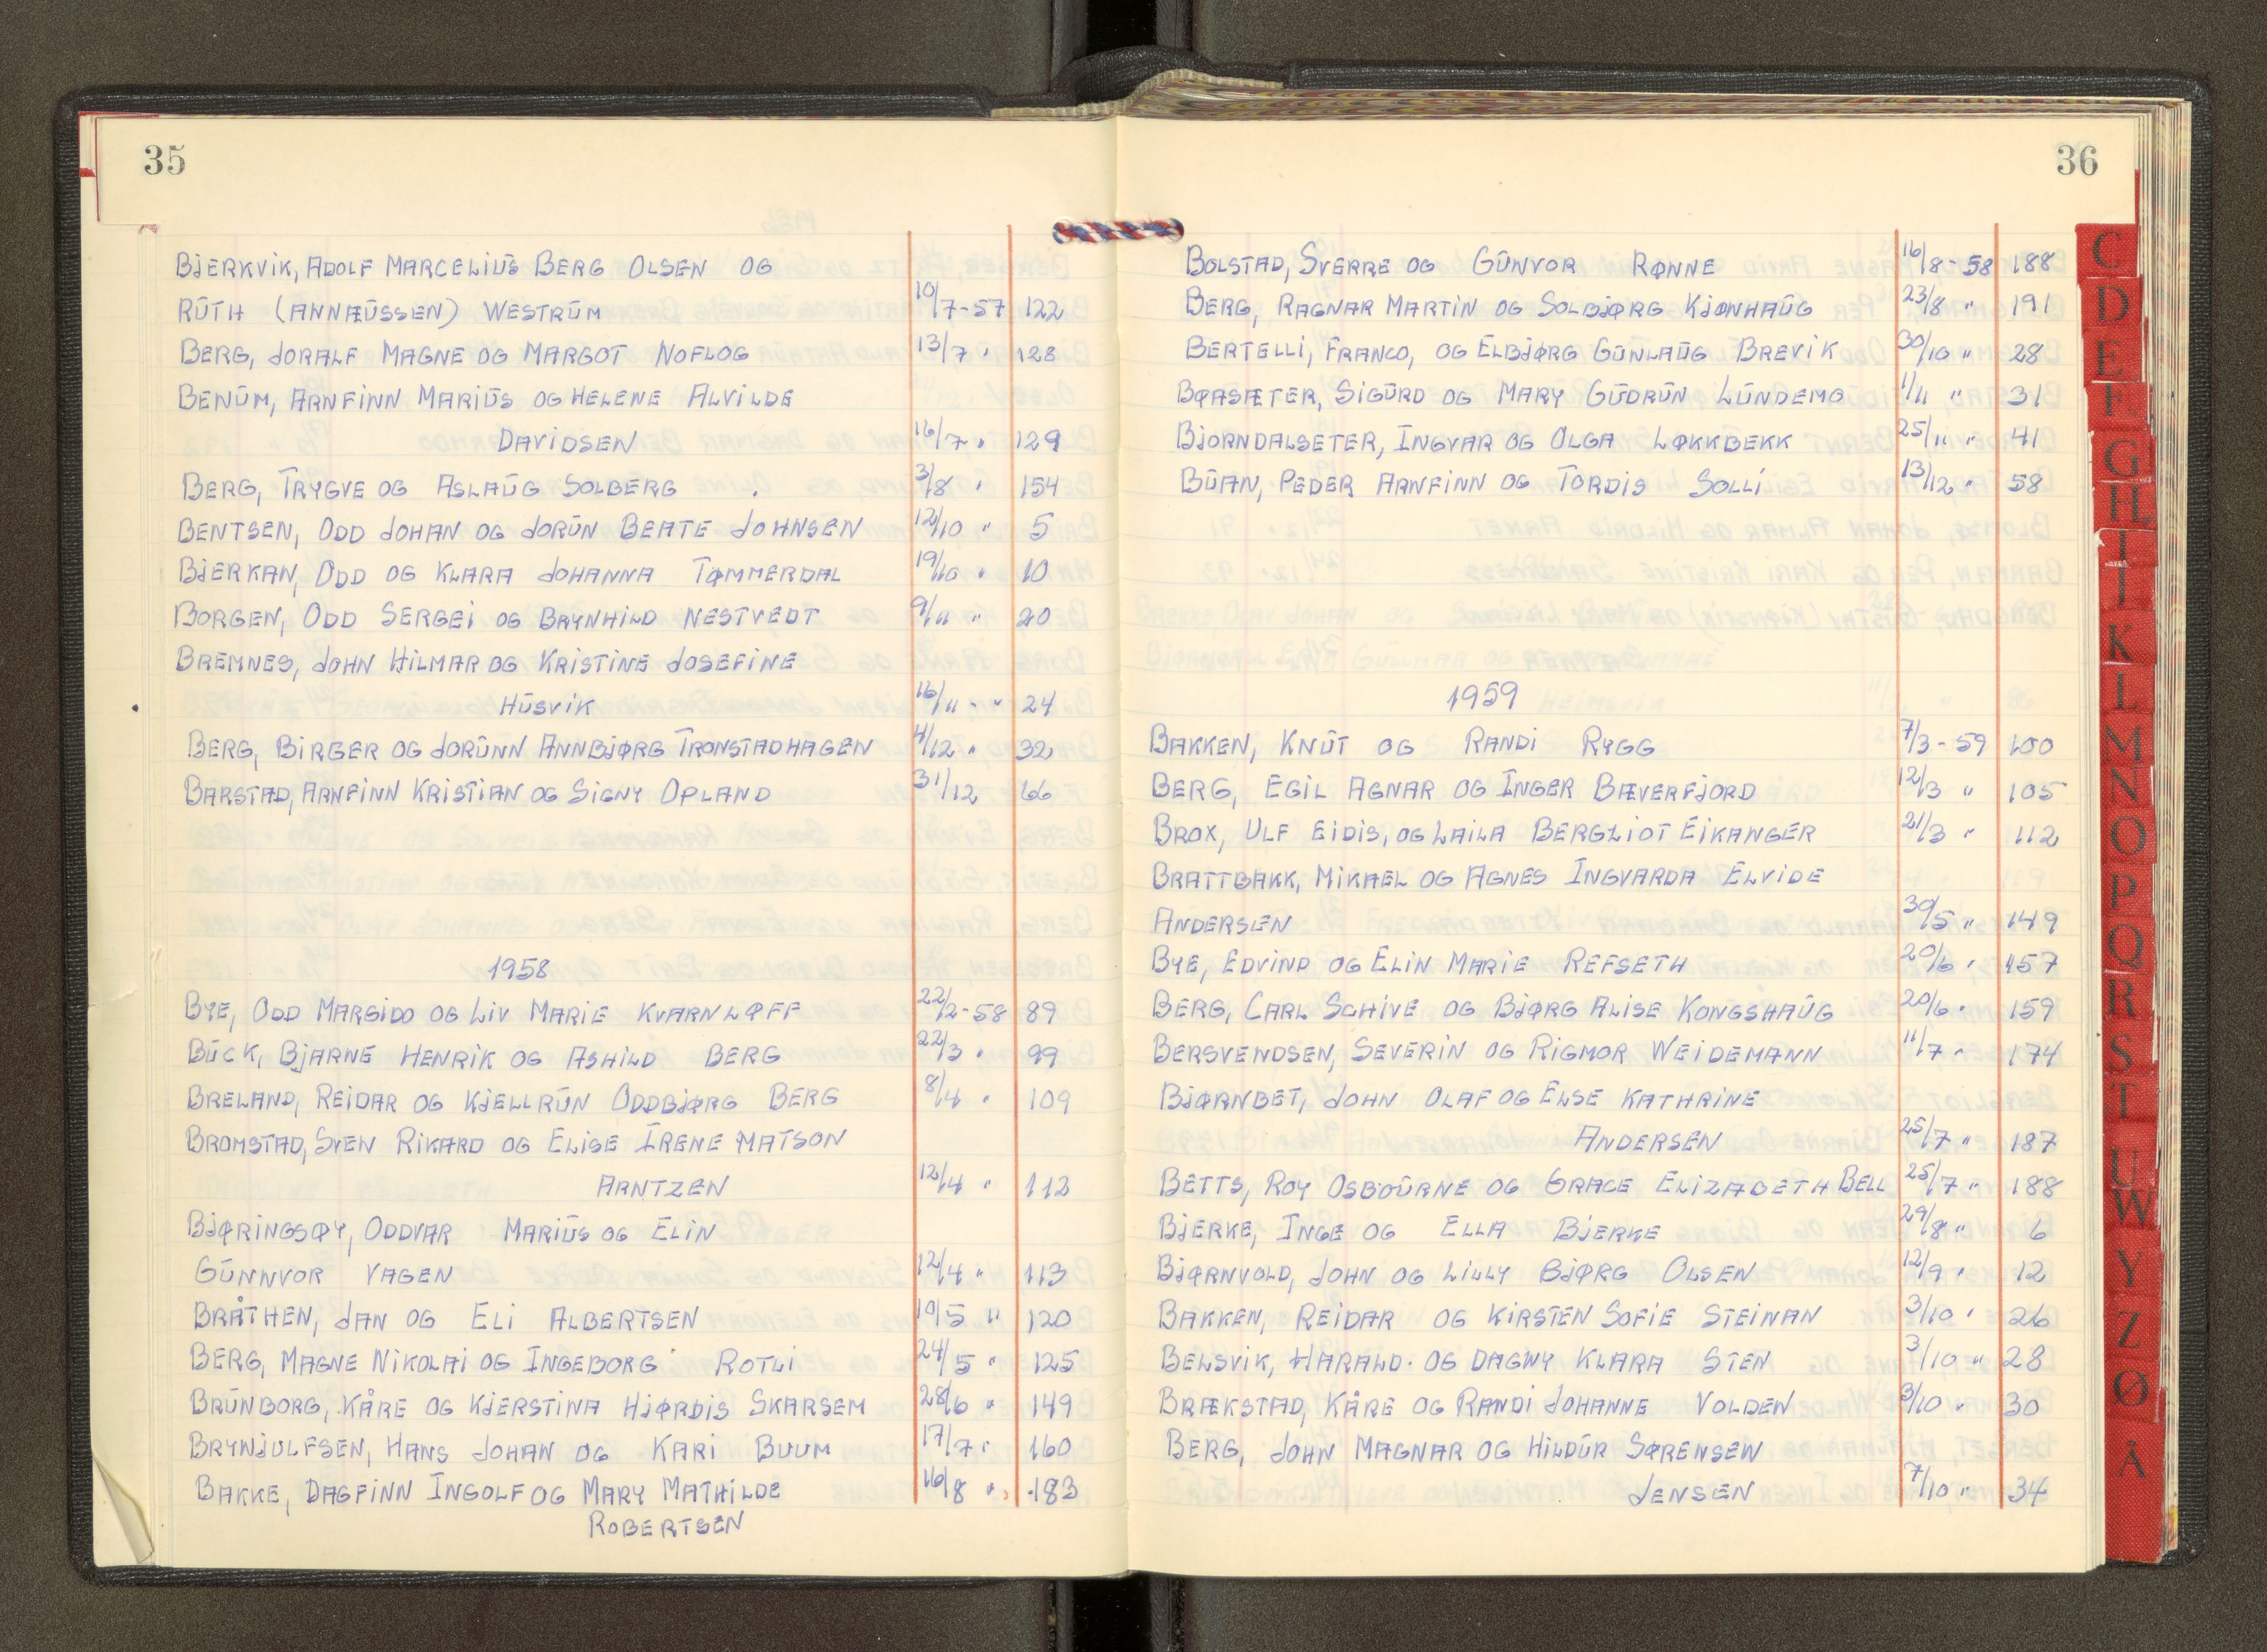 35
BJERKVIK, ADOLF MARCELIUS BERG OLSEN OG
RUTH (ANNÆUSSEN) WESTRUM 10/7-57 122
BERG, JORALF MAGNE OG MARGOT NOFLOG 13/7 " 128
BENUM, ARNFINN MARIUS OG HELENE ALVILDE
DAVIDSEN 16/7 " 129
BERG, TRYGVE OG ASLAUG SOLBERG 3/8 " 154
BENTSEN, ODD JOHAN OG JORUN BEATE JOHNSEN 12/10 " 5
BJERKAN, ODD OG KLARA JOHANNA TØMMERDAL 19/10 " 10
BORGEN, ODD SERGEI OG BRYNHILD NESTVEDT 9/11 " 20
BREMNES, JOHN HILMAR OG KRISTINE JOSEFINE
HUSVIK 16/11 - " 24
BERG, BIRGER OG JORUNN ANNBJØRG TRONSTADHAGEN 4/12 " 32
BARSTAD, ARNFINN KRISTIAN OG SIGNY OPLAND 31/12 66
1958
BYE, ODD MARGIDO OG LIV MARIE KVARNLØFF 22/2-58 89
BUCK, BJARNE HENRIK OG ASHILD BERG 22/3 " 99
BRELAND, REIDAR OG KJELLRUN ODDBJØRG BERG 8/4 " 109
BROMSTAD, SVEN RIKARD OG ELISE IRENE MATSON
ARNTZEN 12/4 " 112
BJØRINGSØY, ODDVAR MARIUS OG ELIN
GUNNVOR VAGEN 12/4 " 113
BRÅTHEN, JAN OG ELI ALBERTSEN 10/5 " 120
BERG, MAGNE NIKOLAI OG INGEBORG ROTLI 24/5 " 125
BRUNBORG, KÅRE OG KJERSTINA HJØRDIS SKARSEM 28/6 " 149
BRYNJULFSEN, HANS JOHAN OG KARI BUUM 17/7 " 160
BAKKE, DAGFINN INGOLF OG MARY MATHILDE 16/8 " 183
ROBERTSEN
36
BOLSTAD, SVERRE OG GUNVOR RØNNE 16/8-58 188
BERG, RAGNAR MARTIN OG SOLBJØRG KJØNHAUG 23/8 " 191
BERTELLI, FRANCO, OG ELBJØRG GUNLAUG BREVIK 30/10 " 28
BØASÆTER, SIGURD OG MARY GUDRUN LUNDEMO 1/11 " 31
BJORNDALSETER, INGVAR OG OLGA LØKKBEKK 25/11 " 41
BUAN, PEDER ARNFINN OG TORDIS SOLLI 13/12 " 58
1959
BAKKEN, KNUT OG RANDI RYGG 7/3-59 100
BERG, EGIL AGNAR OG INGER BÆVERFJORD 12/3 " 105
BROX, ULF EIDIS, OG LAILA BERGLIOT EIKANGER 21/3 " 112
BRATTBAKK, MIKAEL OG AGNES INGVARDA ELVIDE
ANDERSEN 30/5 " 149
BYE, EDVIND OG ELIN MARIE REFSETH 20/6 " 157
BERG, CARL SCHIVE OG BJØRG ALISE KONGSHAUG 20/6 " 159
BERSVENDSEN, SEVERIN OG RIGMOR WEIDEMANN 11/7 " 174
BJØRNBET, JOHN OLAF OG ELSE KATHRINE
ANDERSEN 25/7 " 187
BETTS, ROY OSBOURNE OG GRACE ELIZABETH BELL 25/7 " 188
BJERKE, INGE OG ELLA BJERKE 29/8 " 6
BJØRNVOLD, JOHN OG LILLY BJØRG OLSEN 12/9 " 12
BAKKEN, REIDAR OG KIRSTEN SOFIE STEINAN 3/10 " 26
BELSVIK, HARALD. OG DAGNY KLARA STEN 3/10 " 28
BRÆKSTAD, KÅRE OG RANDI JOHANNE VOLDEN 3/10 " 30
BERG, JOHN MAGNAR OG HILDUR SØRENSEN
JENSEN 7/10 " 34
C
D
E
F
G
H
I
J
K
L
M
N
O
P
Q
R
S
T
U
W
Y
Z
Ø
Å